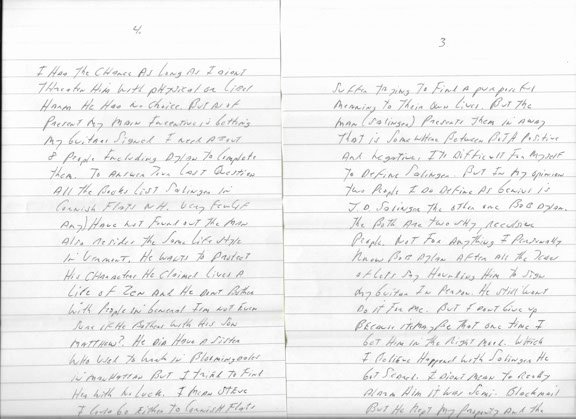 4.
I Had The Chance As Long As I didnt
Threaten Him with physical or
Harm He Has No Choice. But As of
Present My Main Incentive is Getting
My Guitars Signed. I need About
8 People Including Dylan To Complete
Them. To Answer Your Last Question
All The Books List Salinger in
Cornish Flats N.H. Very Few (if
Any) Have Not Found out The Man
Also resides The Same Life style
in Vermont. He wants To Protect
His Characters He Claimed Lives A
Life of Zen And He Dont Bother
with People in General I'm Not Even
Sure if He Bothers with His Son
Matthew?. He Did Have A Sister
Who Used To work in Bloomingdales
in Manhattan But I Tried To Find
Her with No Luck. I Mean Steve
I Could be Either To Cornish Flats
3
Suffer Trying To Find A purposeful
Meaning To Their Own Lives. But the
Man (Salinger) Presents Them in A way
That is Somewhere Between Both Positive
And Negative. It's Difficult For Myself
To Define Salinger. But In My opinion
Two People I Do Define As Genius is
J.D. Salinger The other one Bob Dylan.
The Both Are Two shy, reclusive
People. Not For Anything I Personally
Know Bob Dylan. After All The Years
of Lets Say Hounding Him To Sign
My Guitar In Person. He Still Wont
Do it For Me. But I Dont Give up
Because it May Be That one Time I
Got Him in The Right Mood. Which
I Believe Happened with Salinger He
Got Scared. I Didnt Mean To Really
Alarm Him it was Semi. Blackmail
But He Kept My Property And The